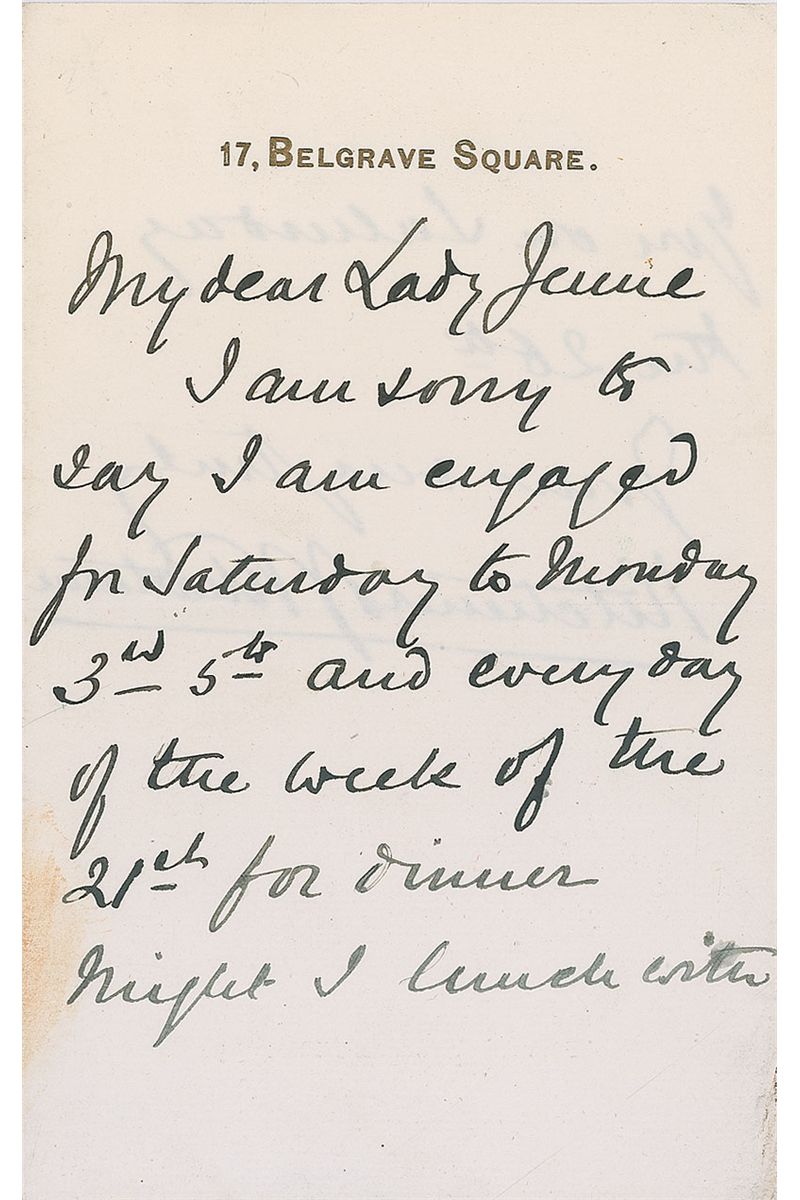 17, BELGRAVE SQUARE.
My dear Lady Jeune
I am sorry to
say I am engaged
for Saturday to Monday
3rd 5th and every day
of the week of the
21st for dinner
Might I lunch with